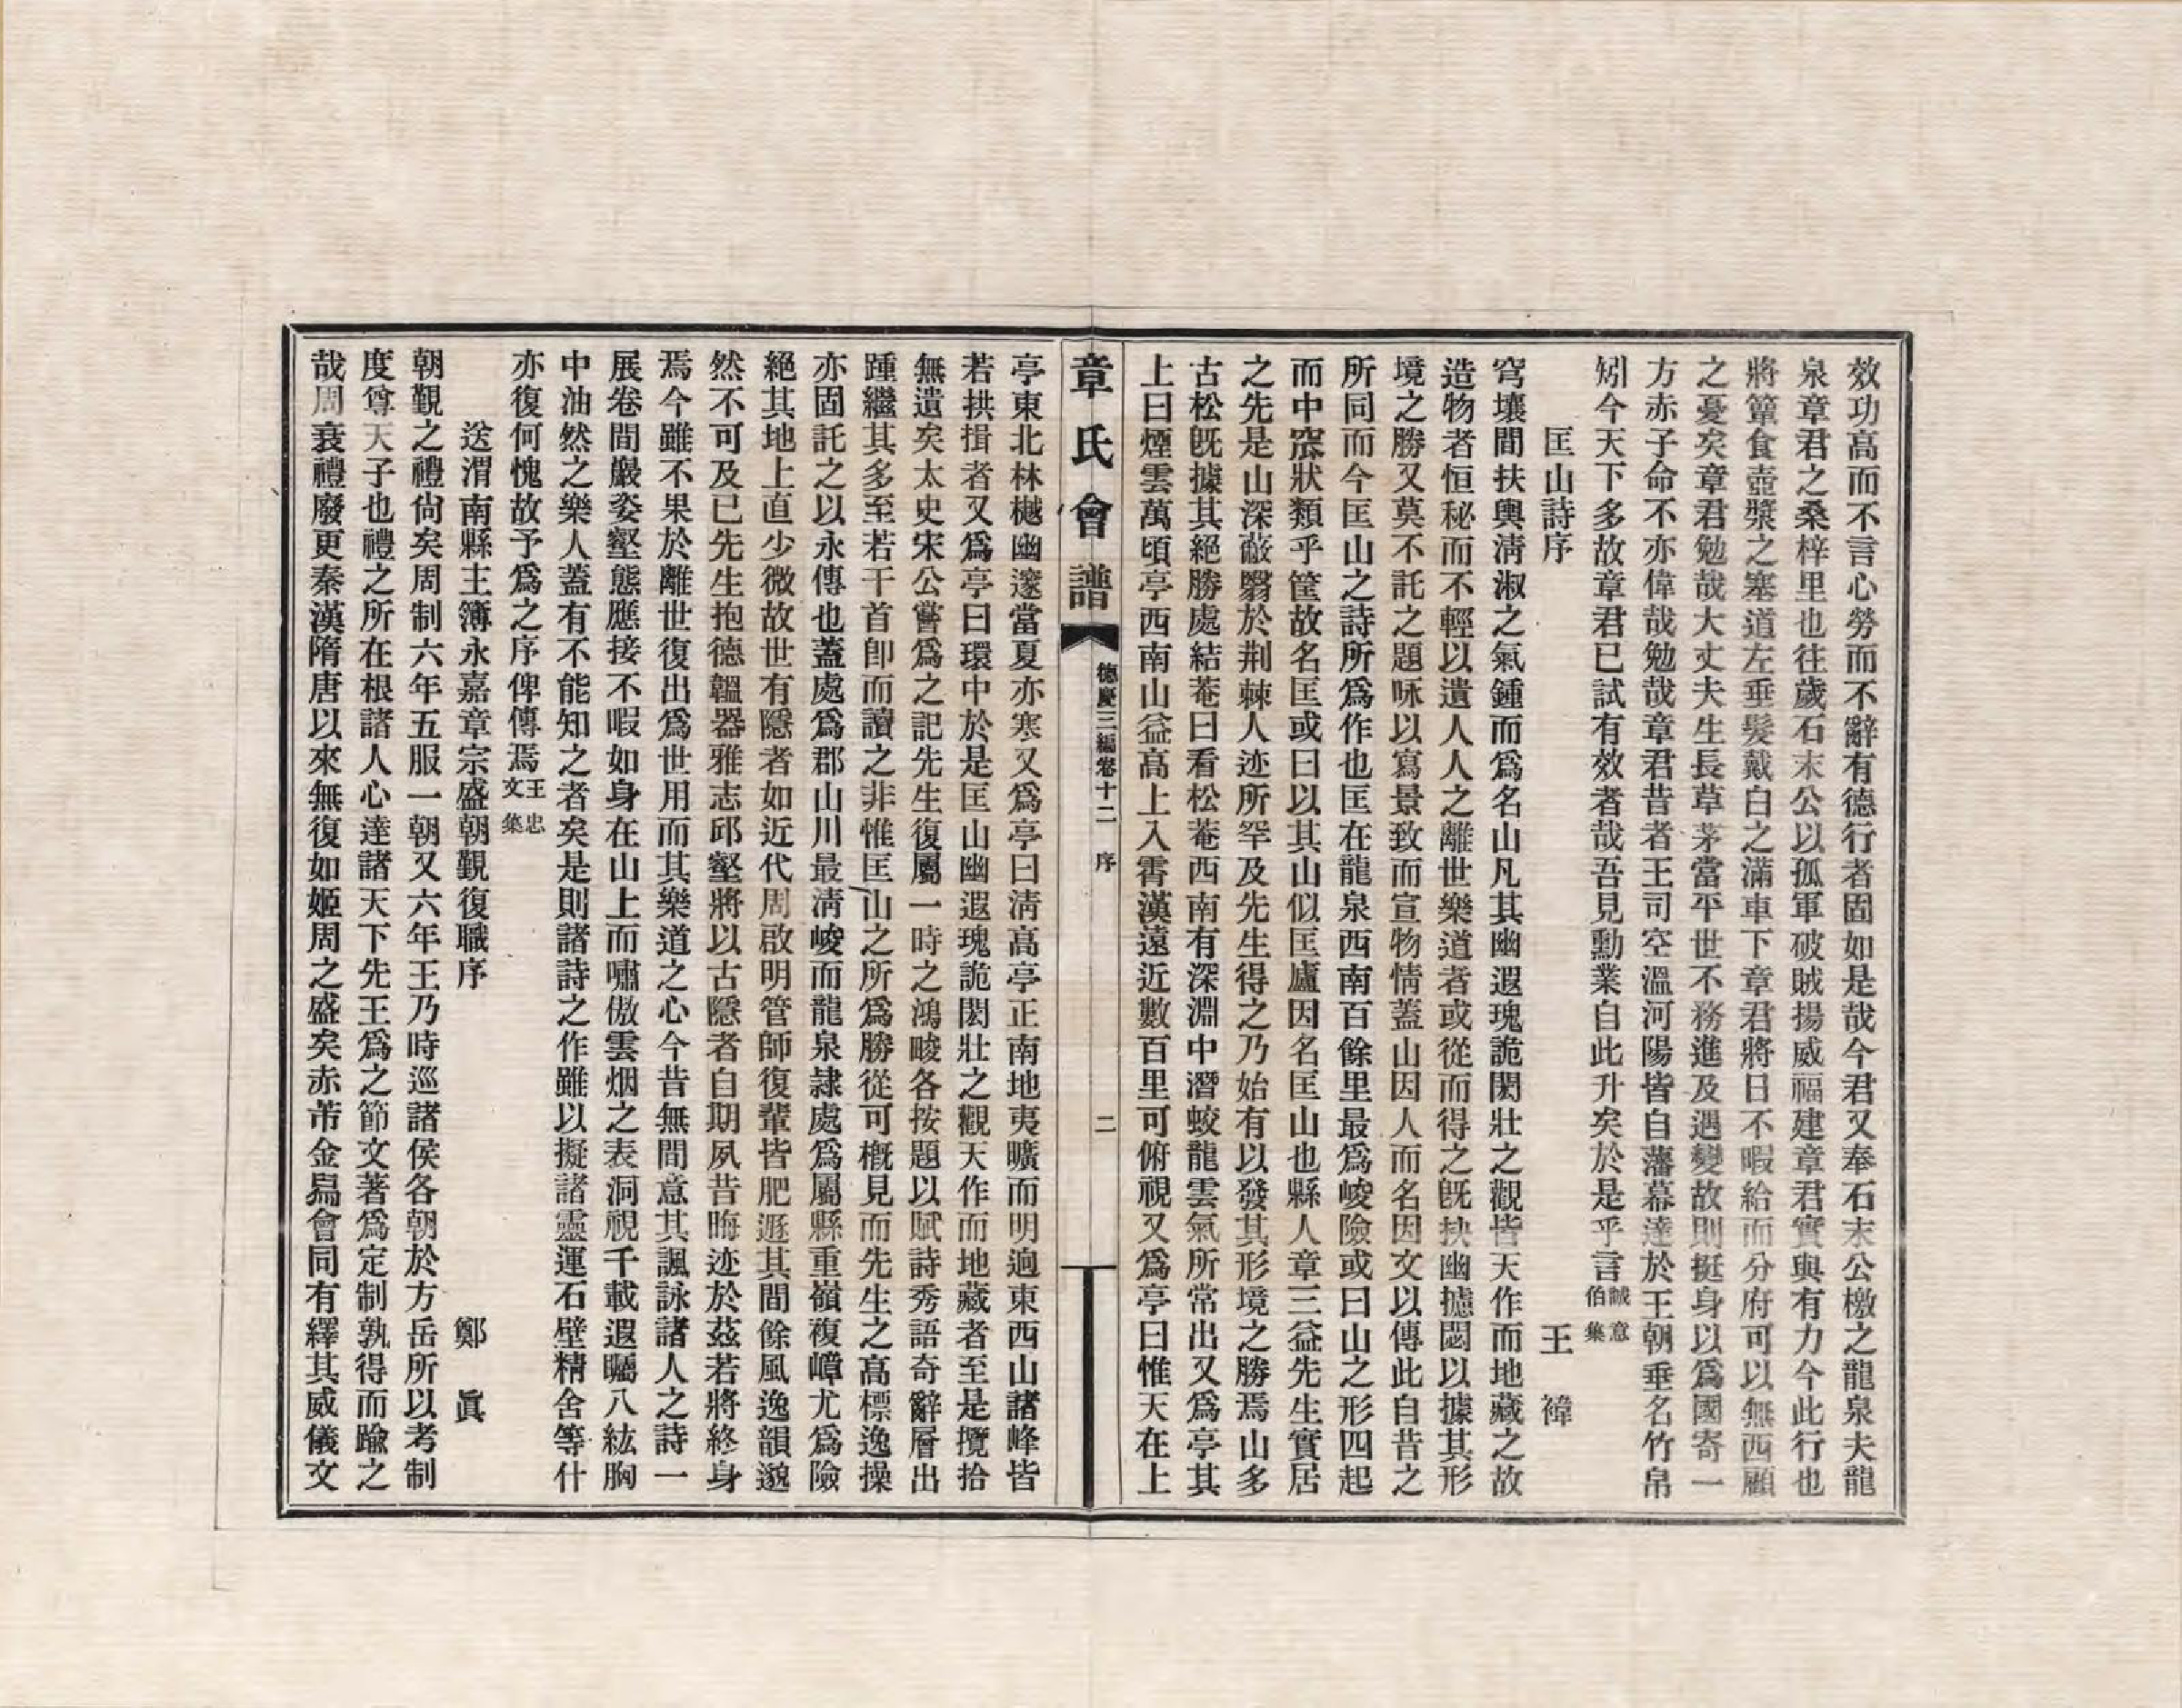 效功高而不言心勞而不辭有德行者固如是哉今君又奉石末公檄之龍泉夫龍
泉章君之桑梓里也往歲石末公以孤軍破賊揚威福建章君實與有力今此行也
將簞食壺漿之塞道左垂髮戴白之滿車下章君將日不暇給而分府可以無西顧
之憂矣章君勉哉大丈夫生長草茅當平世不務進及遇變故則挺身以爲國寄一
方赤子命不亦偉哉勉哉章君昔者王司空溫河陽皆自藩幕達於王朝垂名竹帛
矧今天下多故章君已試有效者哉吾見勳業自此升矣於是乎言誠意伯集
匡山詩序 王禕
穹壤間扶輿淸淑之氣鍾而爲名山凡其幽遐瑰詭閎壯之觀皆天作而地藏之故
造物者恒秘而不輕以遺人人之離世樂道者或從而得之旣抉幽攄閟以據其形
境之勝又莫不託之題咏以寫景致而宣物情蓋山因人而名因文以傳此自昔之
所同而今匡山之詩所爲作也匡在龍泉西南百餘里最爲峻險或曰山之形四起
而中窊狀類乎筐故名匡或曰以其山似匡廬因名匡山也縣人章三益先生實居
之先是山深蔽翳於荆棘人迹所罕及先生得之乃始有以發其形境之勝焉山多
古松旣據其絕勝處結菴曰看松菴西南有深淵中潛蛟龍雲氣所常出又爲亭其
上曰煙雲萬頃亭西南山益高上入霄漢遠近數百里可俯視又爲亭曰惟天在上
章氏會譜 德慶三編卷十二 序 二
亭東北林樾幽邃當夏亦寒又爲亭曰淸高亭正南地夷曠而明逈東西山諸峰皆
若拱揖者又爲亭曰環中於是匡山幽遐瑰詭閎壯之觀天作而地藏者至是攬拾
無遺矣太史宋公嘗爲之記先生復屬一時之鴻畯各按題以賦詩秀語奇辭層出
踵繼其多至若干首卽而讀之非惟匡山之所爲勝從可槪見而先生之高標逸操
亦固託之以永傳也蓋處爲郡山川最淸峻而龍泉隷處爲屬縣重嶺複嶂尤爲險
絕其地上直少微故世有隱者如近代周啟明管師復輩皆肥遯其間餘風逸韻邈
然不可及已先生抱德韞器雅志邱壑將以古隱者自期夙昔晦迹於茲若將終身
焉今雖不果於離世復出爲世用而其樂道之心今昔無間意其諷詠諸人之詩一
展卷間巖姿壑態應接不暇如身在山上而嘯傲雲烟之表洞視千載遐矚八紘胸
中油然之樂人蓋有不能知之者矣是則諸詩之作雖以擬諸靈運石壁精舍等什
亦復何愧故予爲之序俾傳焉王忠文集
送渭南縣主簿永嘉章宗盛朝覲復職序 鄭眞
朝覲之禮尙矣周制六年五服一朝又六年王乃時巡諸侯各朝於方岳所以考制
度尊天子也禮之所在根諸人心達諸天下先王爲之節文著爲定制孰得而踰之
哉周衰禮廢更秦漢隋唐以來無復如姬周之盛矣赤芾金舄會同有繹其威儀文